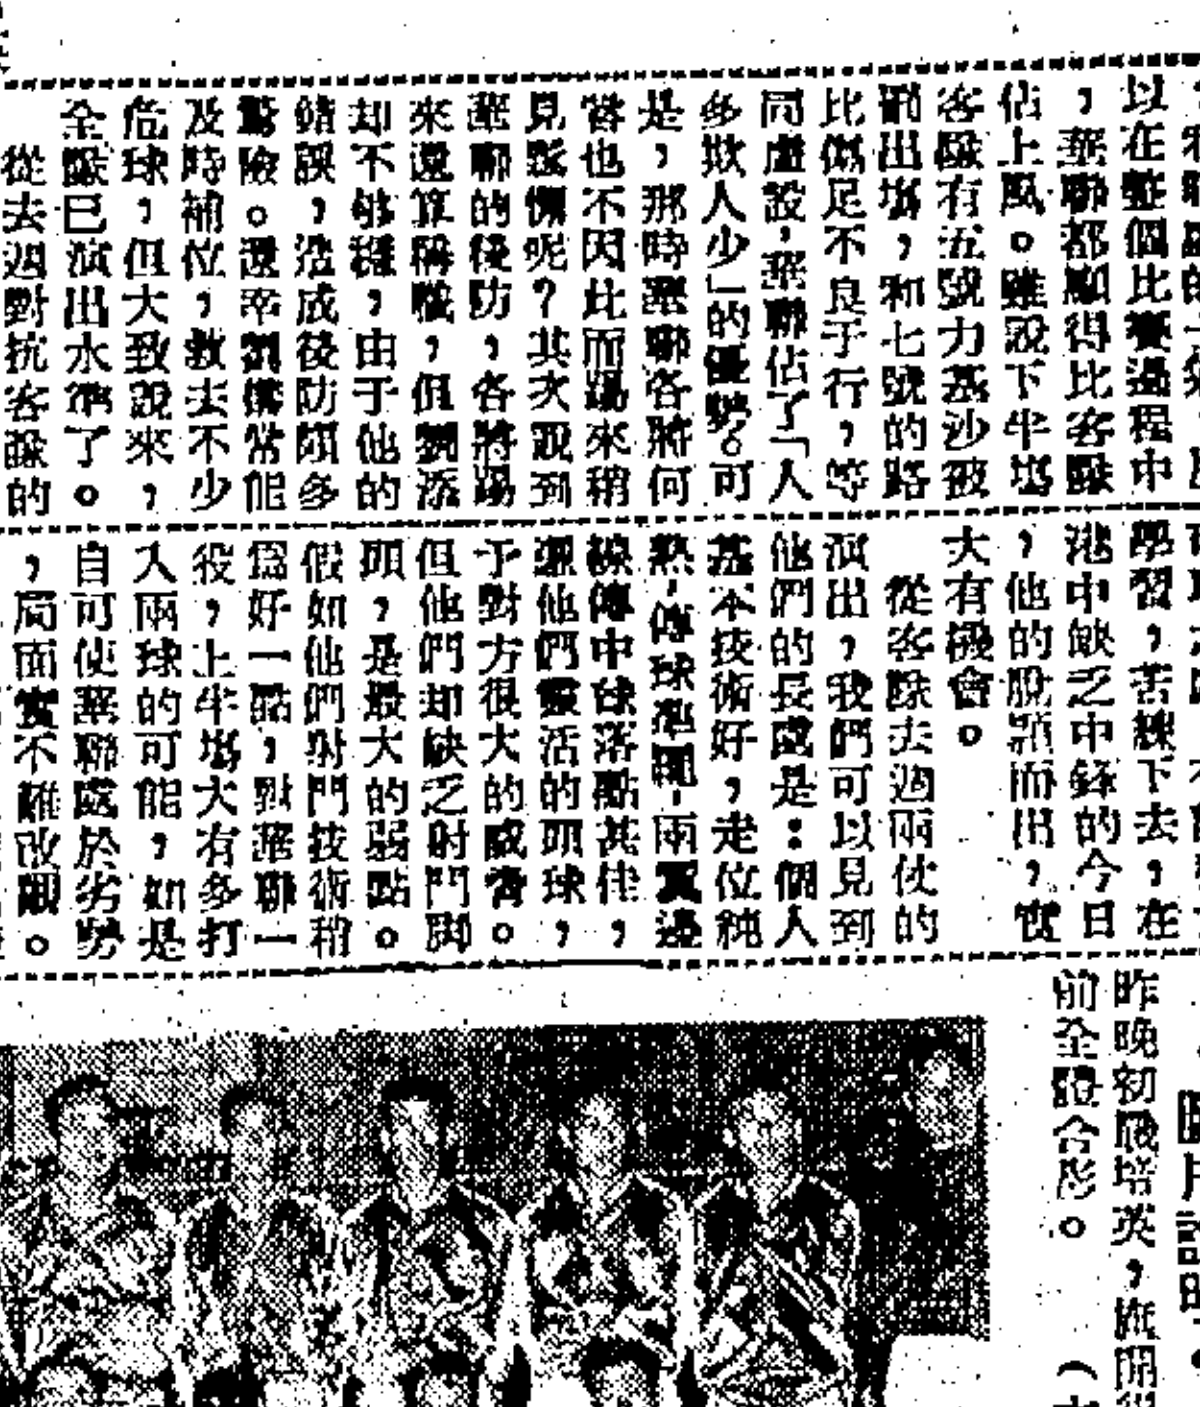 以在整個比賽過程中
，華聯都顯得比客隊
佔上風。雖說下半場
客隊有五號力基沙被
劉出場，和七號的路
比傷足不良于行，等
同虛設，華聯佔了「人
多欺人少」的優勢。可
是，那時華聯各將何
嘗也不因此而踢來稍
見鬆懈呢？其次說到
華聯的後防，各將踢
來還算稱職，但劉添
却不够穩，由于他的
錯誤，造成後防頗多
驚險。還幸劉儀常能
及時補位，救去不少
危球，但大致說來，
全隊已演出水準了。
從去週對抗客隊的
學習，苦練下去，在
港中缺乏中鋒的今日
，他的脫頴而出，實
大有機會。
從客隊去週兩仗的
演出，我們可以見到
他們的長處是：個人
基本技術好，走位純
熟，傳球準確，兩翼邊
線傳中球落點甚佳，
憑他們靈活的頭球，
予對方很大的威脅。
但他們却缺乏射門脚
頭，是最大的弱點。
假如他們射門技術稍
爲好一點，對華聯一
役，上半場大有多打
入兩球的可能，如是
自可使華聯處於劣勢
，局面實不難改觀。
昨晚初戰培英，旗開得
前全體合影。（本